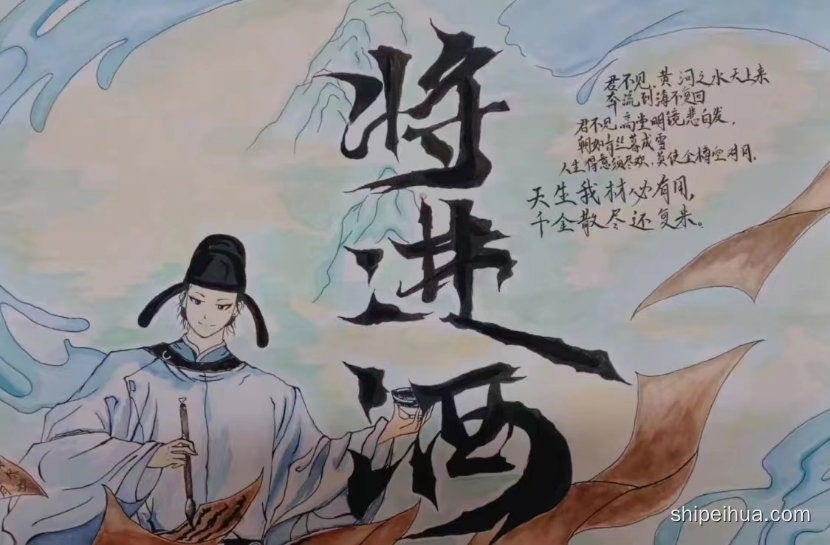 将进酒
君不见,黄河之水天上来
奔流到海不复回
君不见,高堂明镜悲白发,
朝如青丝暮成雪
人生得意须尽欢,莫使金樽空对月。
天生我材必有用,
千金散尽还复来。
shipeihua.com